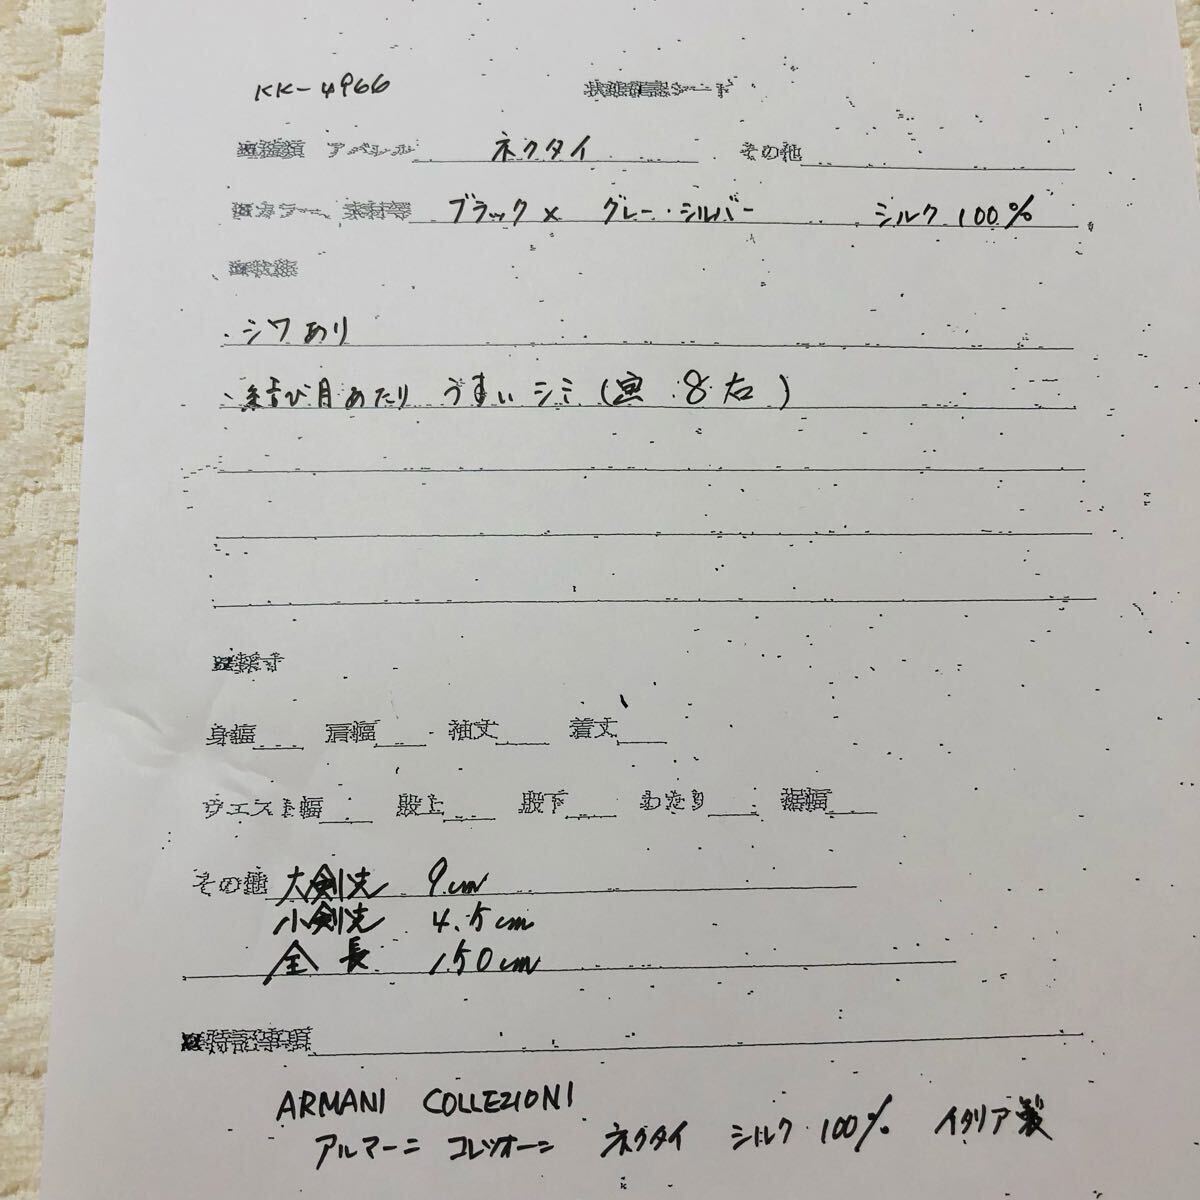 KK-4966 状態確認シート
■種類 アパレル ネクタイ その他
■カラー、素材等 ブラック× グレー・シルバー シルク 100%
■状態
・シワあり
・結び目あたり うすいシミ(画 8 右)
■採寸
身幅 肩幅 袖丈 着丈
ウエスト幅 股上 股下 わたり 裾幅
その他 大剣先 9cm
小剣先 4.5cm
全長 150cm
■特記事項
ARMANI COLLEZIONI
アルマーニ コレツオーニ ネクタイ シルク 100% イタリア製